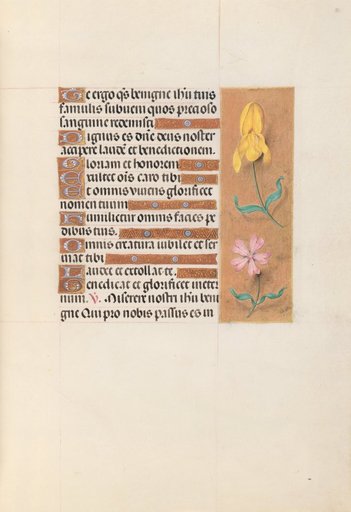 Te ergo qs benigne ihu tuis
famulis subueni quos precioso
sanguine redemisti
Dignus es dne deus noster
accipere laude et benedictionem.
Gloriam et honorem
Exultet ois caro tibi
Et omnis viuens glorificet
nomen tuum
Humilietur omnis facies pe
dibus tuis.
Omnis creatura iubilet et ser
uiat tibi
Laudet et extollat te.
Benedicat et glorificet in eter
num. V. Miserere nostri ihu beni
gne Qui pro nobis passus es in